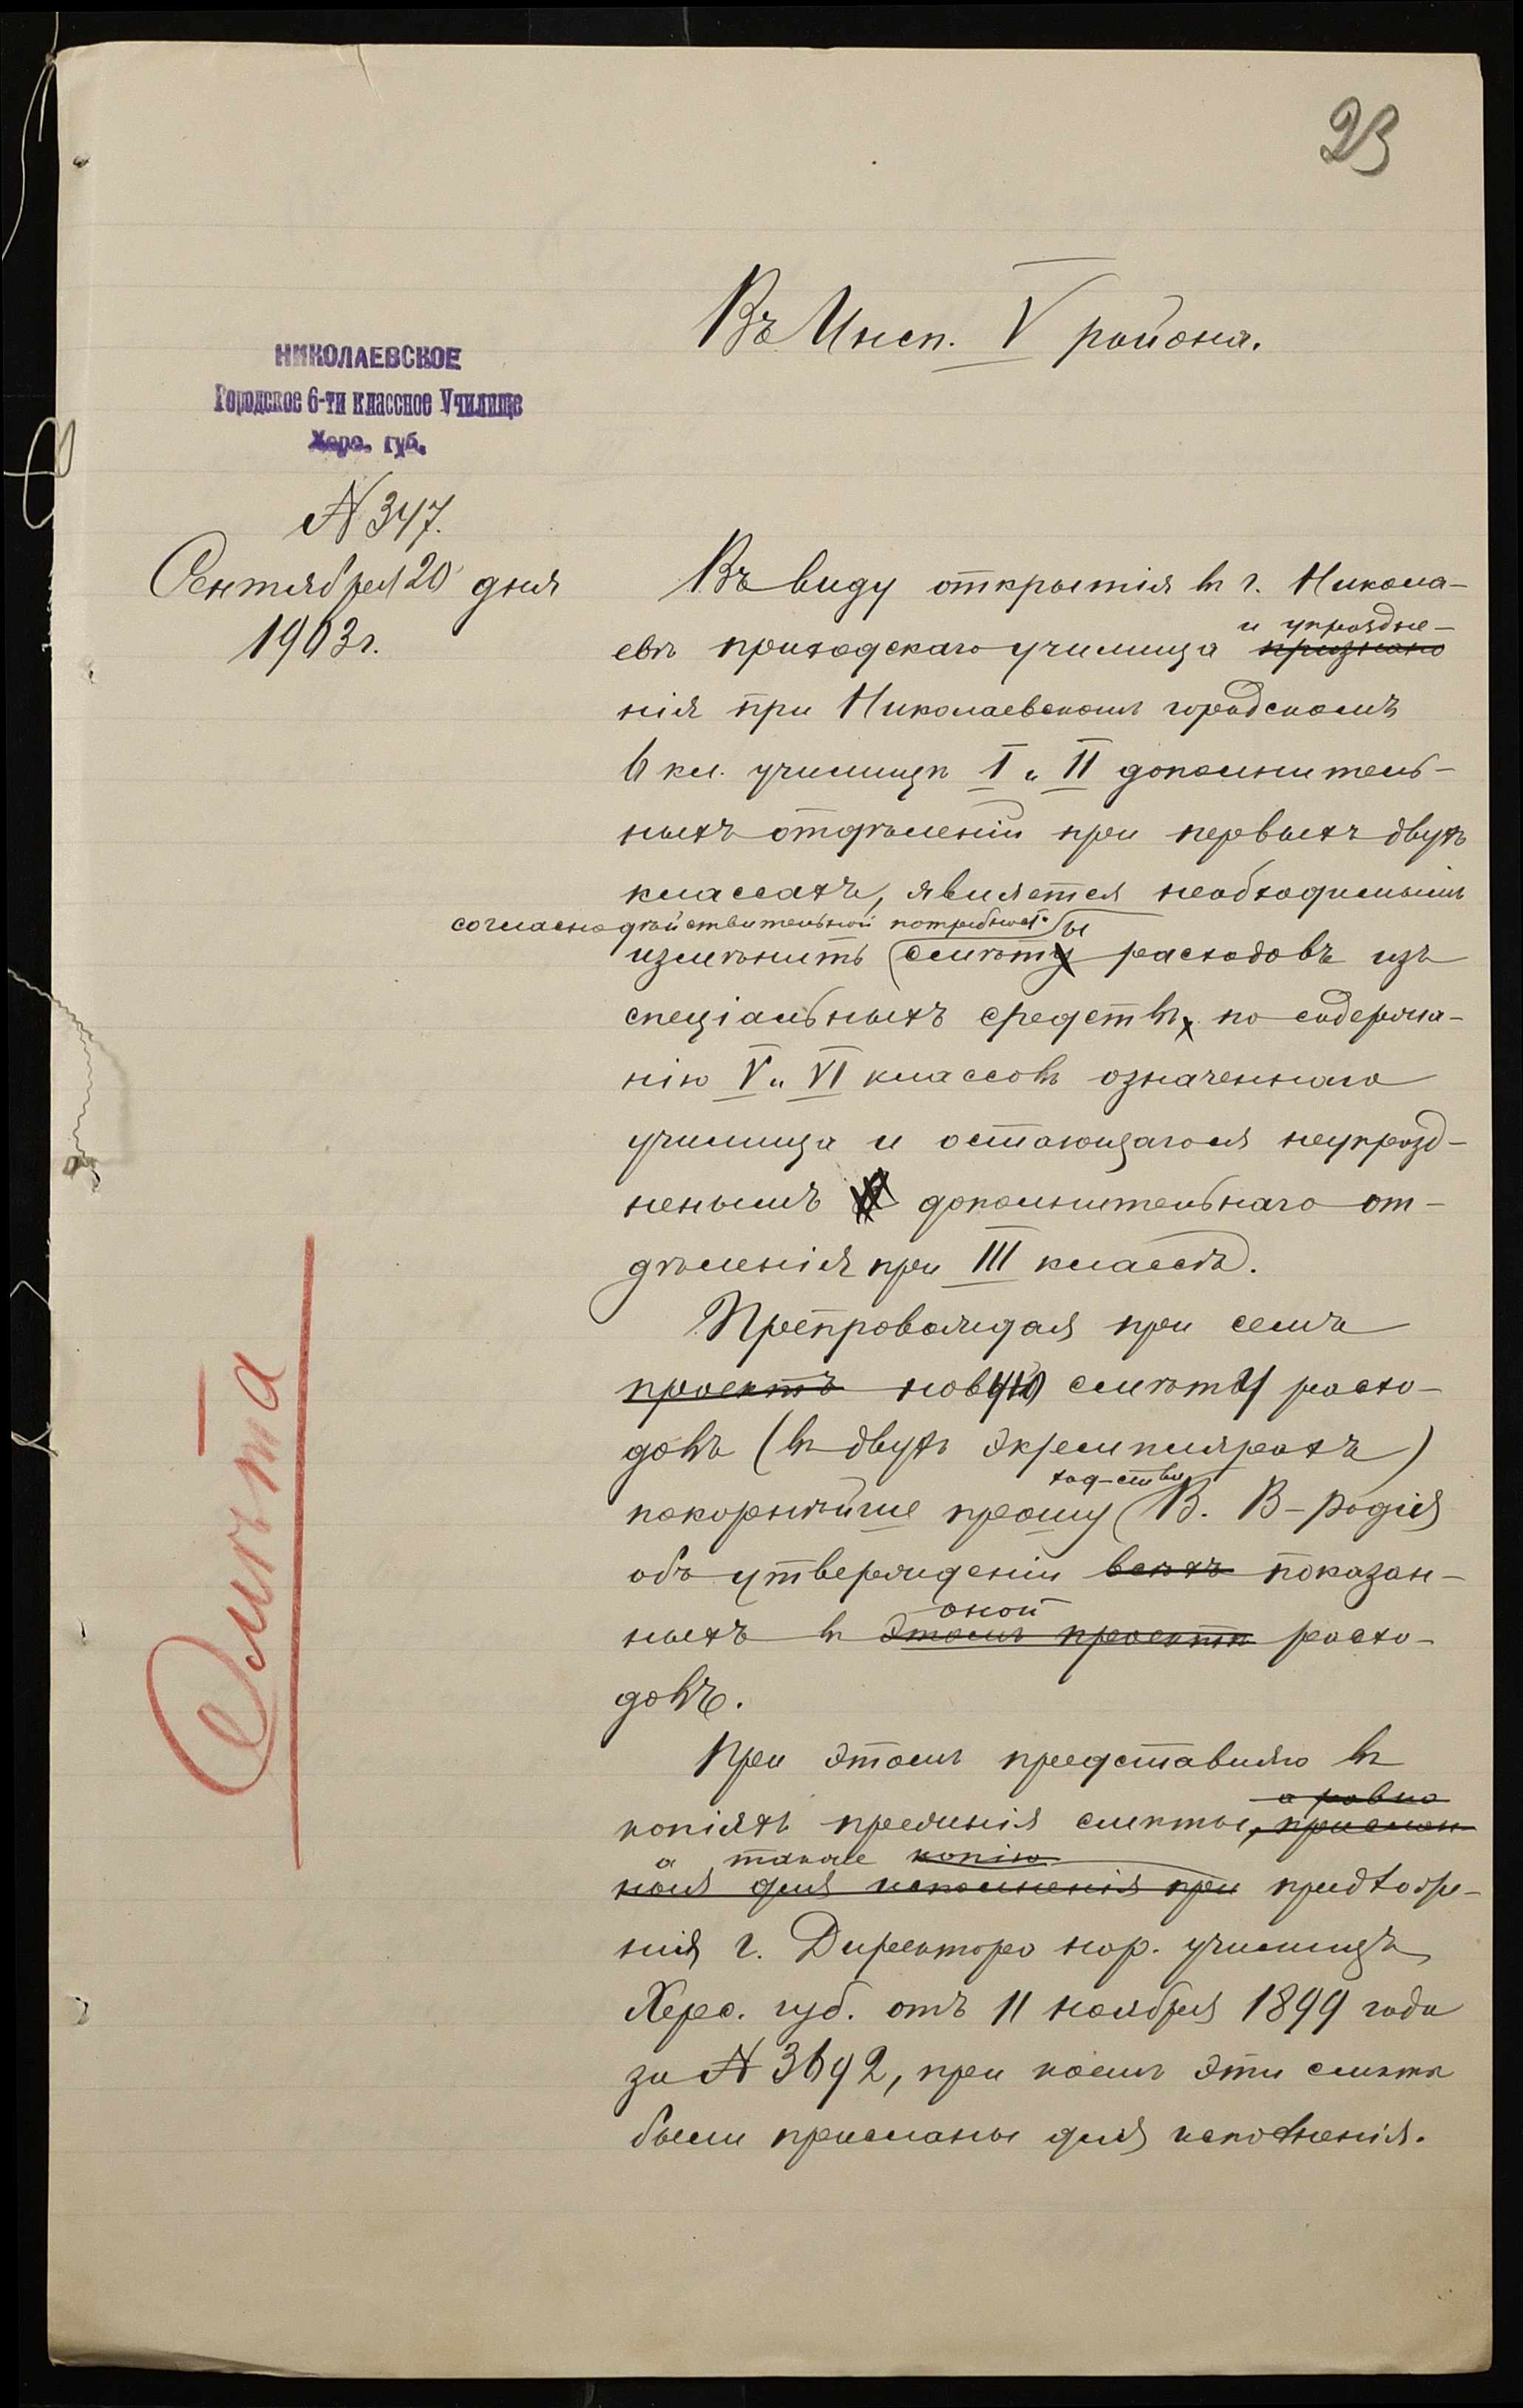 23
Въ Инсп. V района.
НИКОЛАЕВСКОЕ
Городское 6-ти классное Училище
Херс. губ.
№ 347.
Сентября 20 дня
1903 г.
Въ виду открытія въ г. Никола-
и упраздне-
евѣ приходскаго училища признано
нія при Николаевскомъ городскомъ
6 кл. училищѣ I и II дополнитель-
ныхъ отдѣленій при первыхъ двухъ
классахъ, является необходимымъ
согласно дѣйствительной потребност. ы
измѣнить смѣту расходовъ изъ
спеціальныхъ средствъ по содержа-
нію V и VI классовъ означеннаго
училища и остающагося неупразд-
неннымъ дополнительнаго от-
дѣленія при III классѣ.
Препровождая при семъ
проектъ новую смѣту расхо-
довъ (въ двухъ экземплярахъ)
ход-ств
покорнѣйше прошу В. В-родія
объ утвержденіи всѣхъ показан-
оной
ныхъ въ этомъ проектѣ расхо-
довъ.
При этомъ представляю въ
а равно
копіяхъ прежнія смѣты, прислан
а также копію
ныя для исполненія при предложе-
нія г. Директора нар. училищъ
Херс. губ. отъ 11 ноября 1899 года
за № 3692, при коемъ эти смѣты
были присланы для исполненія.
Смѣта